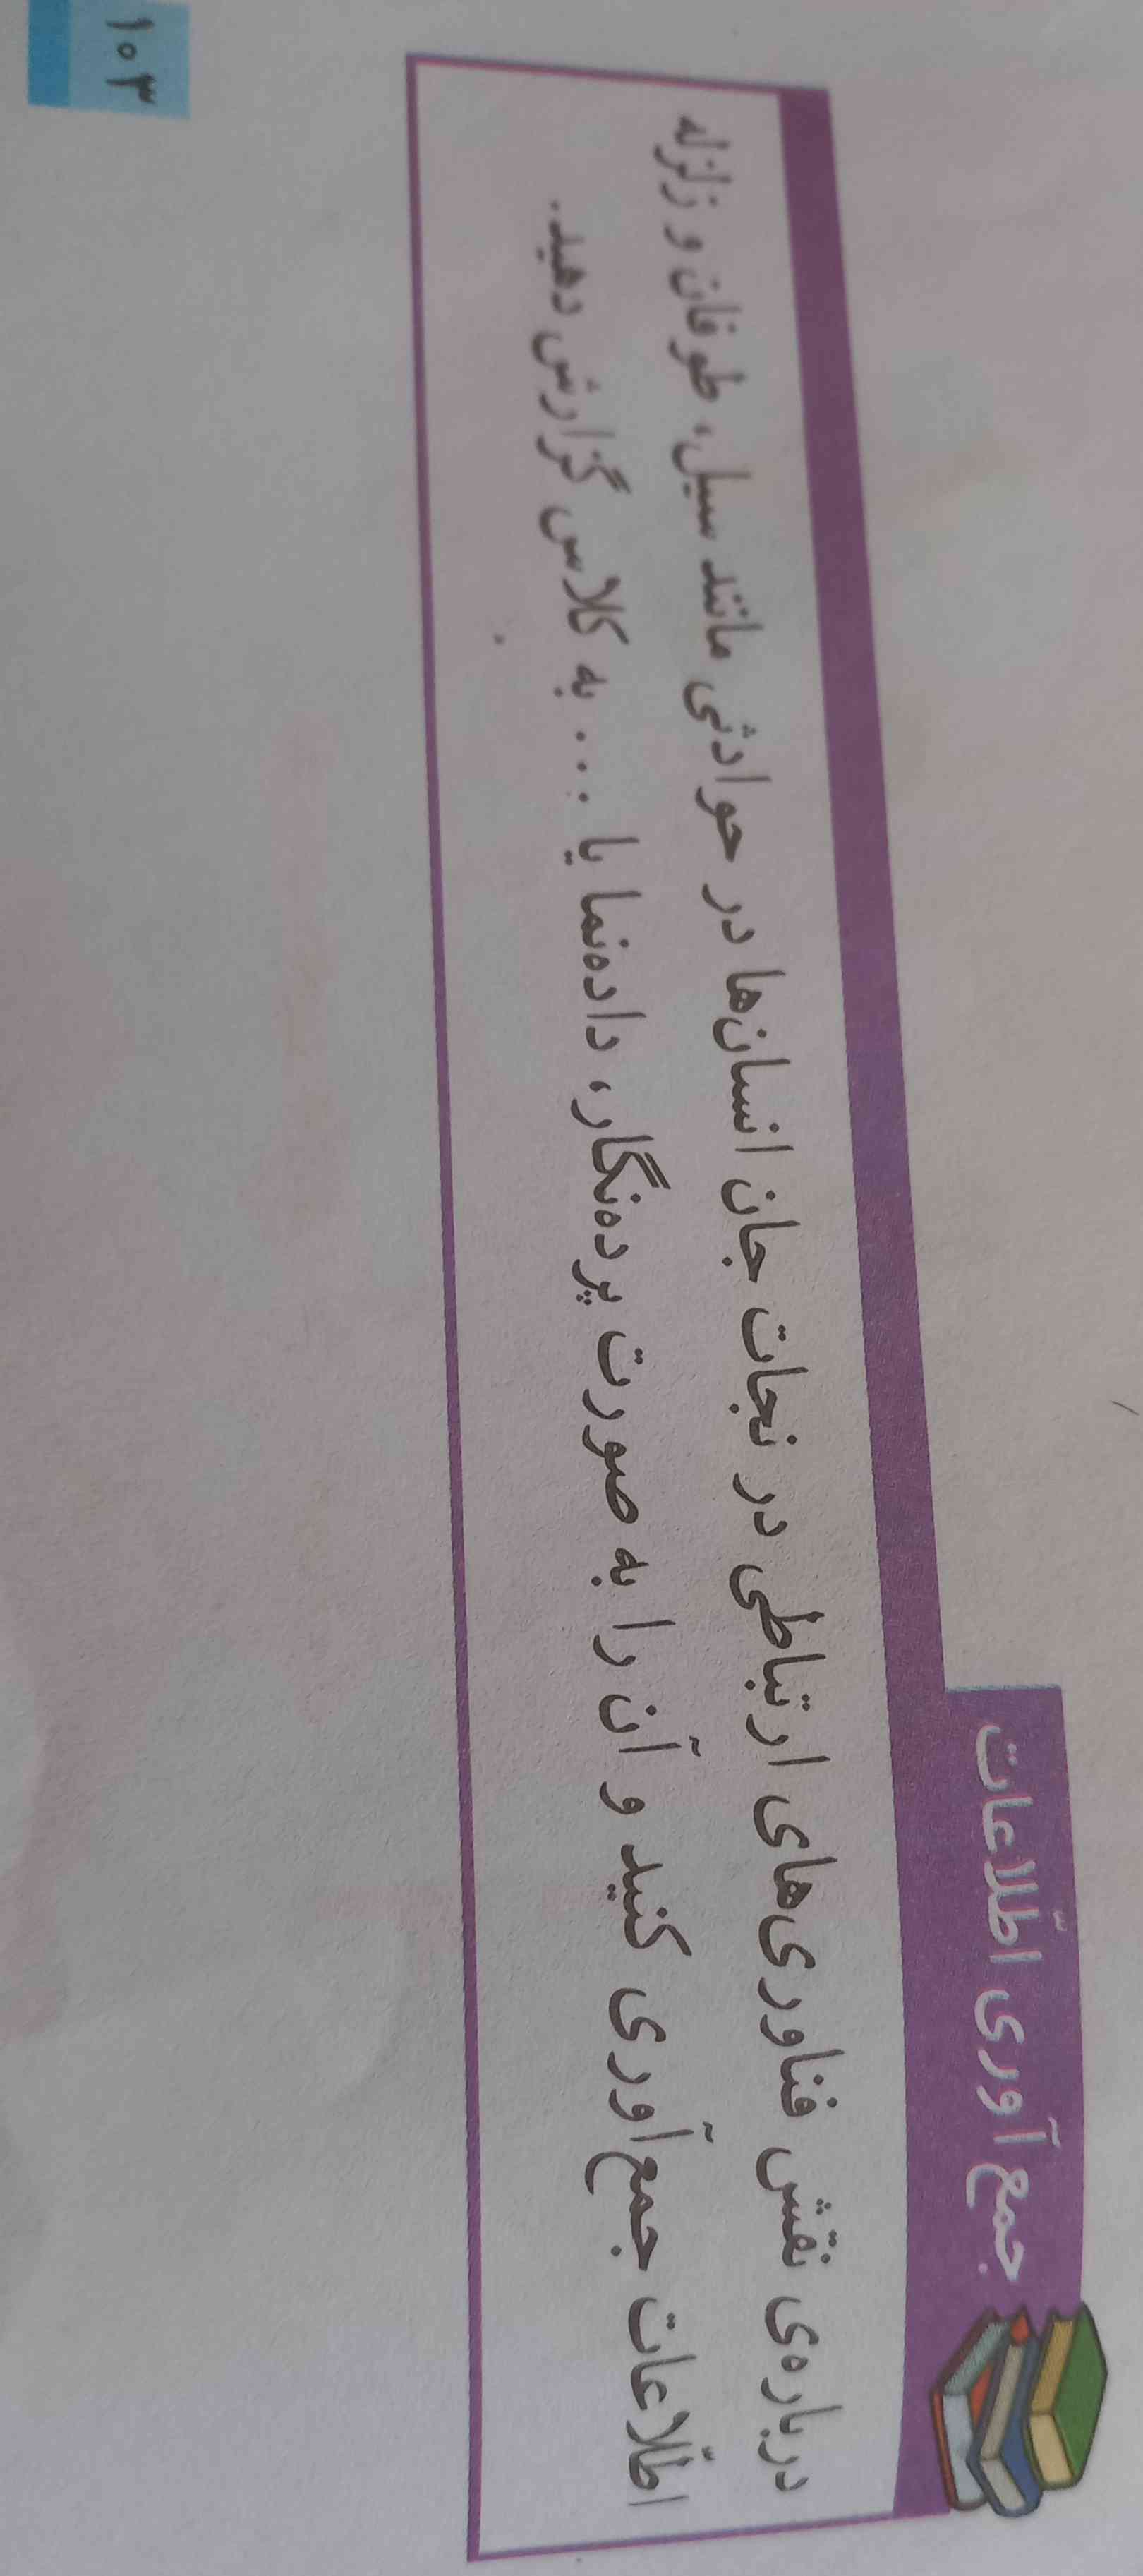 جمع‌آوری اطّلاعات
درباره‌ی نقش فناوری‌های ارتباطی در نجات جان انسان‌ها در حوادثی مانند سیل، طوفان و زلزله
اطّلاعات جمع‌آوری کنید و آن را به صورت پرده‌نگار، داده‌نما یا ... به کلاس گزارش دهید.
۱۰۳